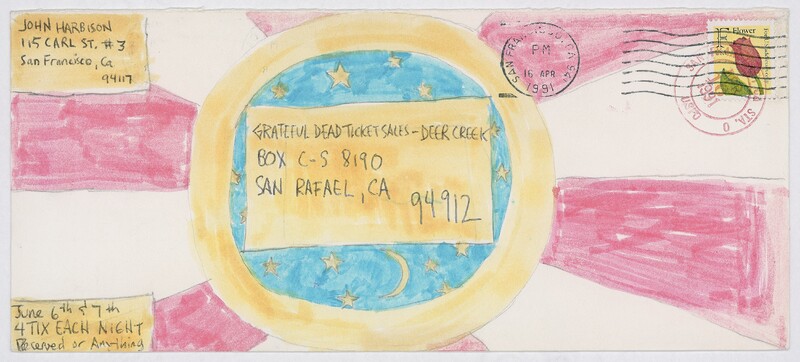 JOHN HARBISON
115 CARL ST. #3
San Francisco, Ca
94117
SAN FRANCISCO, CA 941
PM
16 APR
1991
Flower
1991
STA. O
GRATEFUL DEAD TICKET SALES - DEER CREEK
BOX C-S 8190
SAN RAFAEL, CA
94912
June 6th & 7th
4 TIX EACH NIGHT
Reserved or Anything